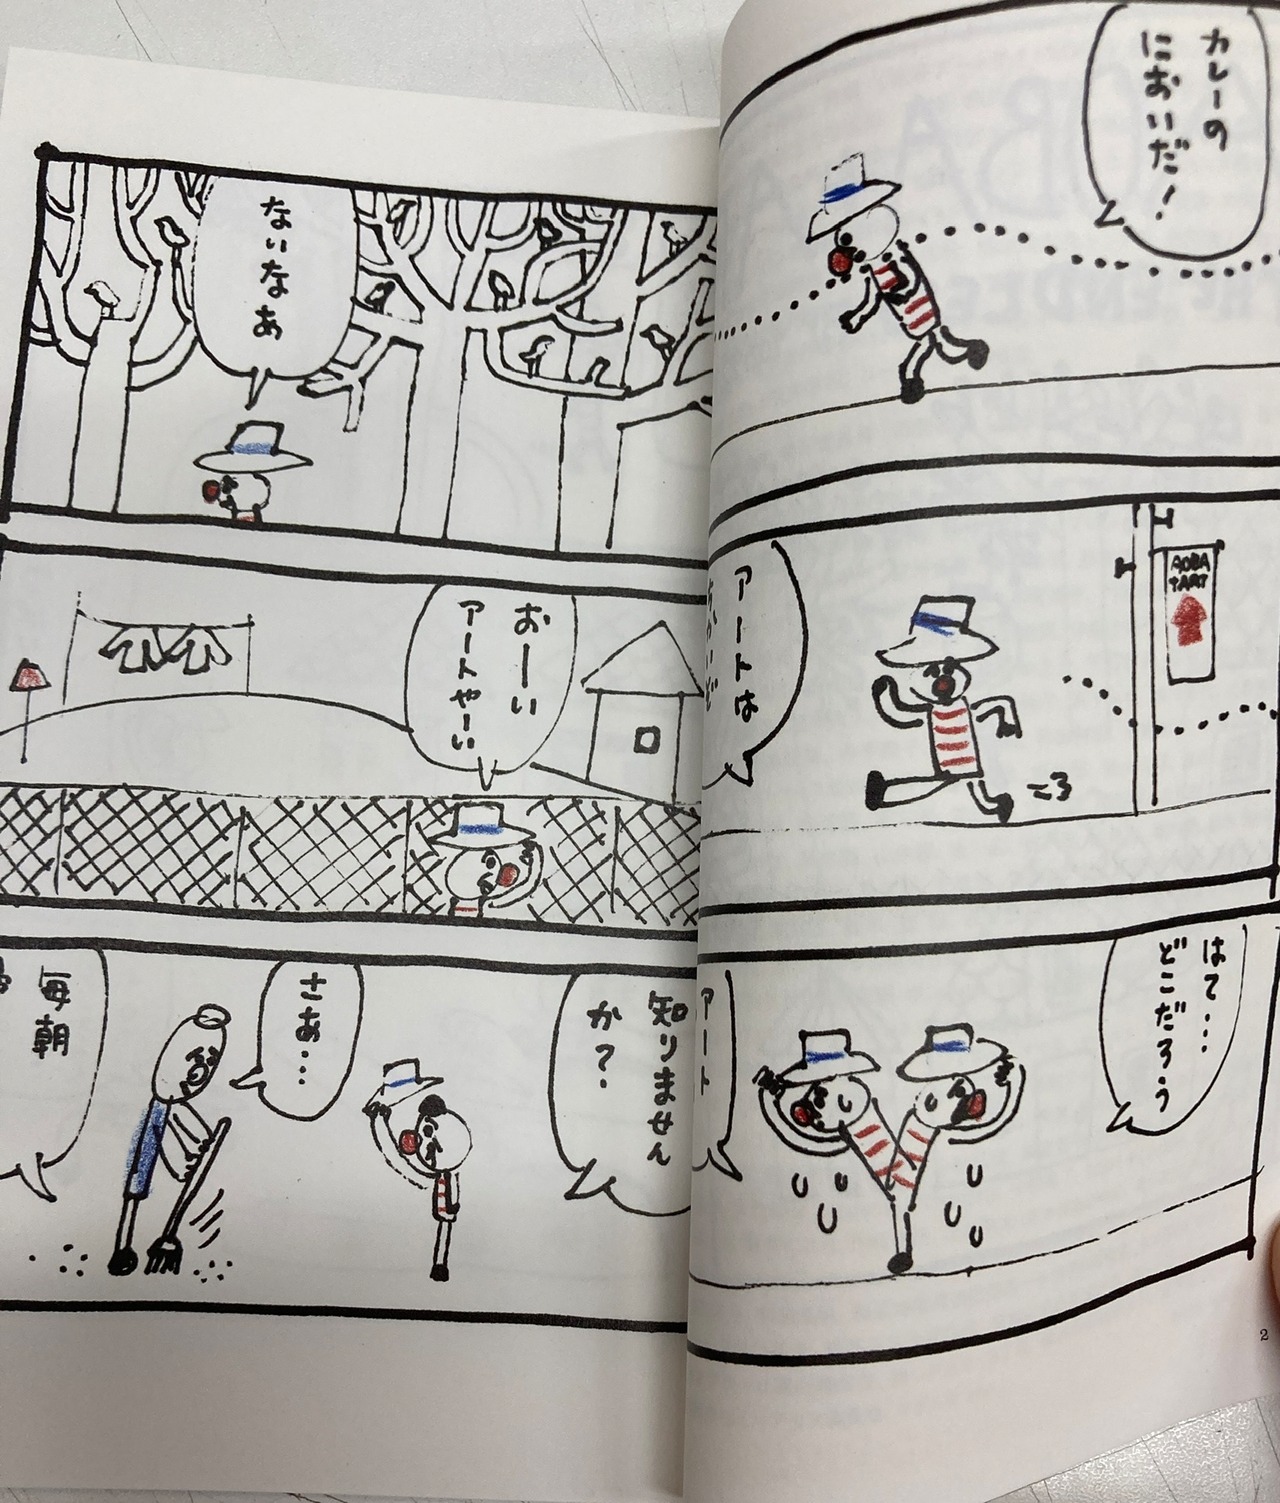 カレーの
においだ！
AOBA
TART
アートは
ころ
はて…
どこだろう
ないなあ
おーい
アートやーい
アート
知りません
か？
さあ…
毎朝
2